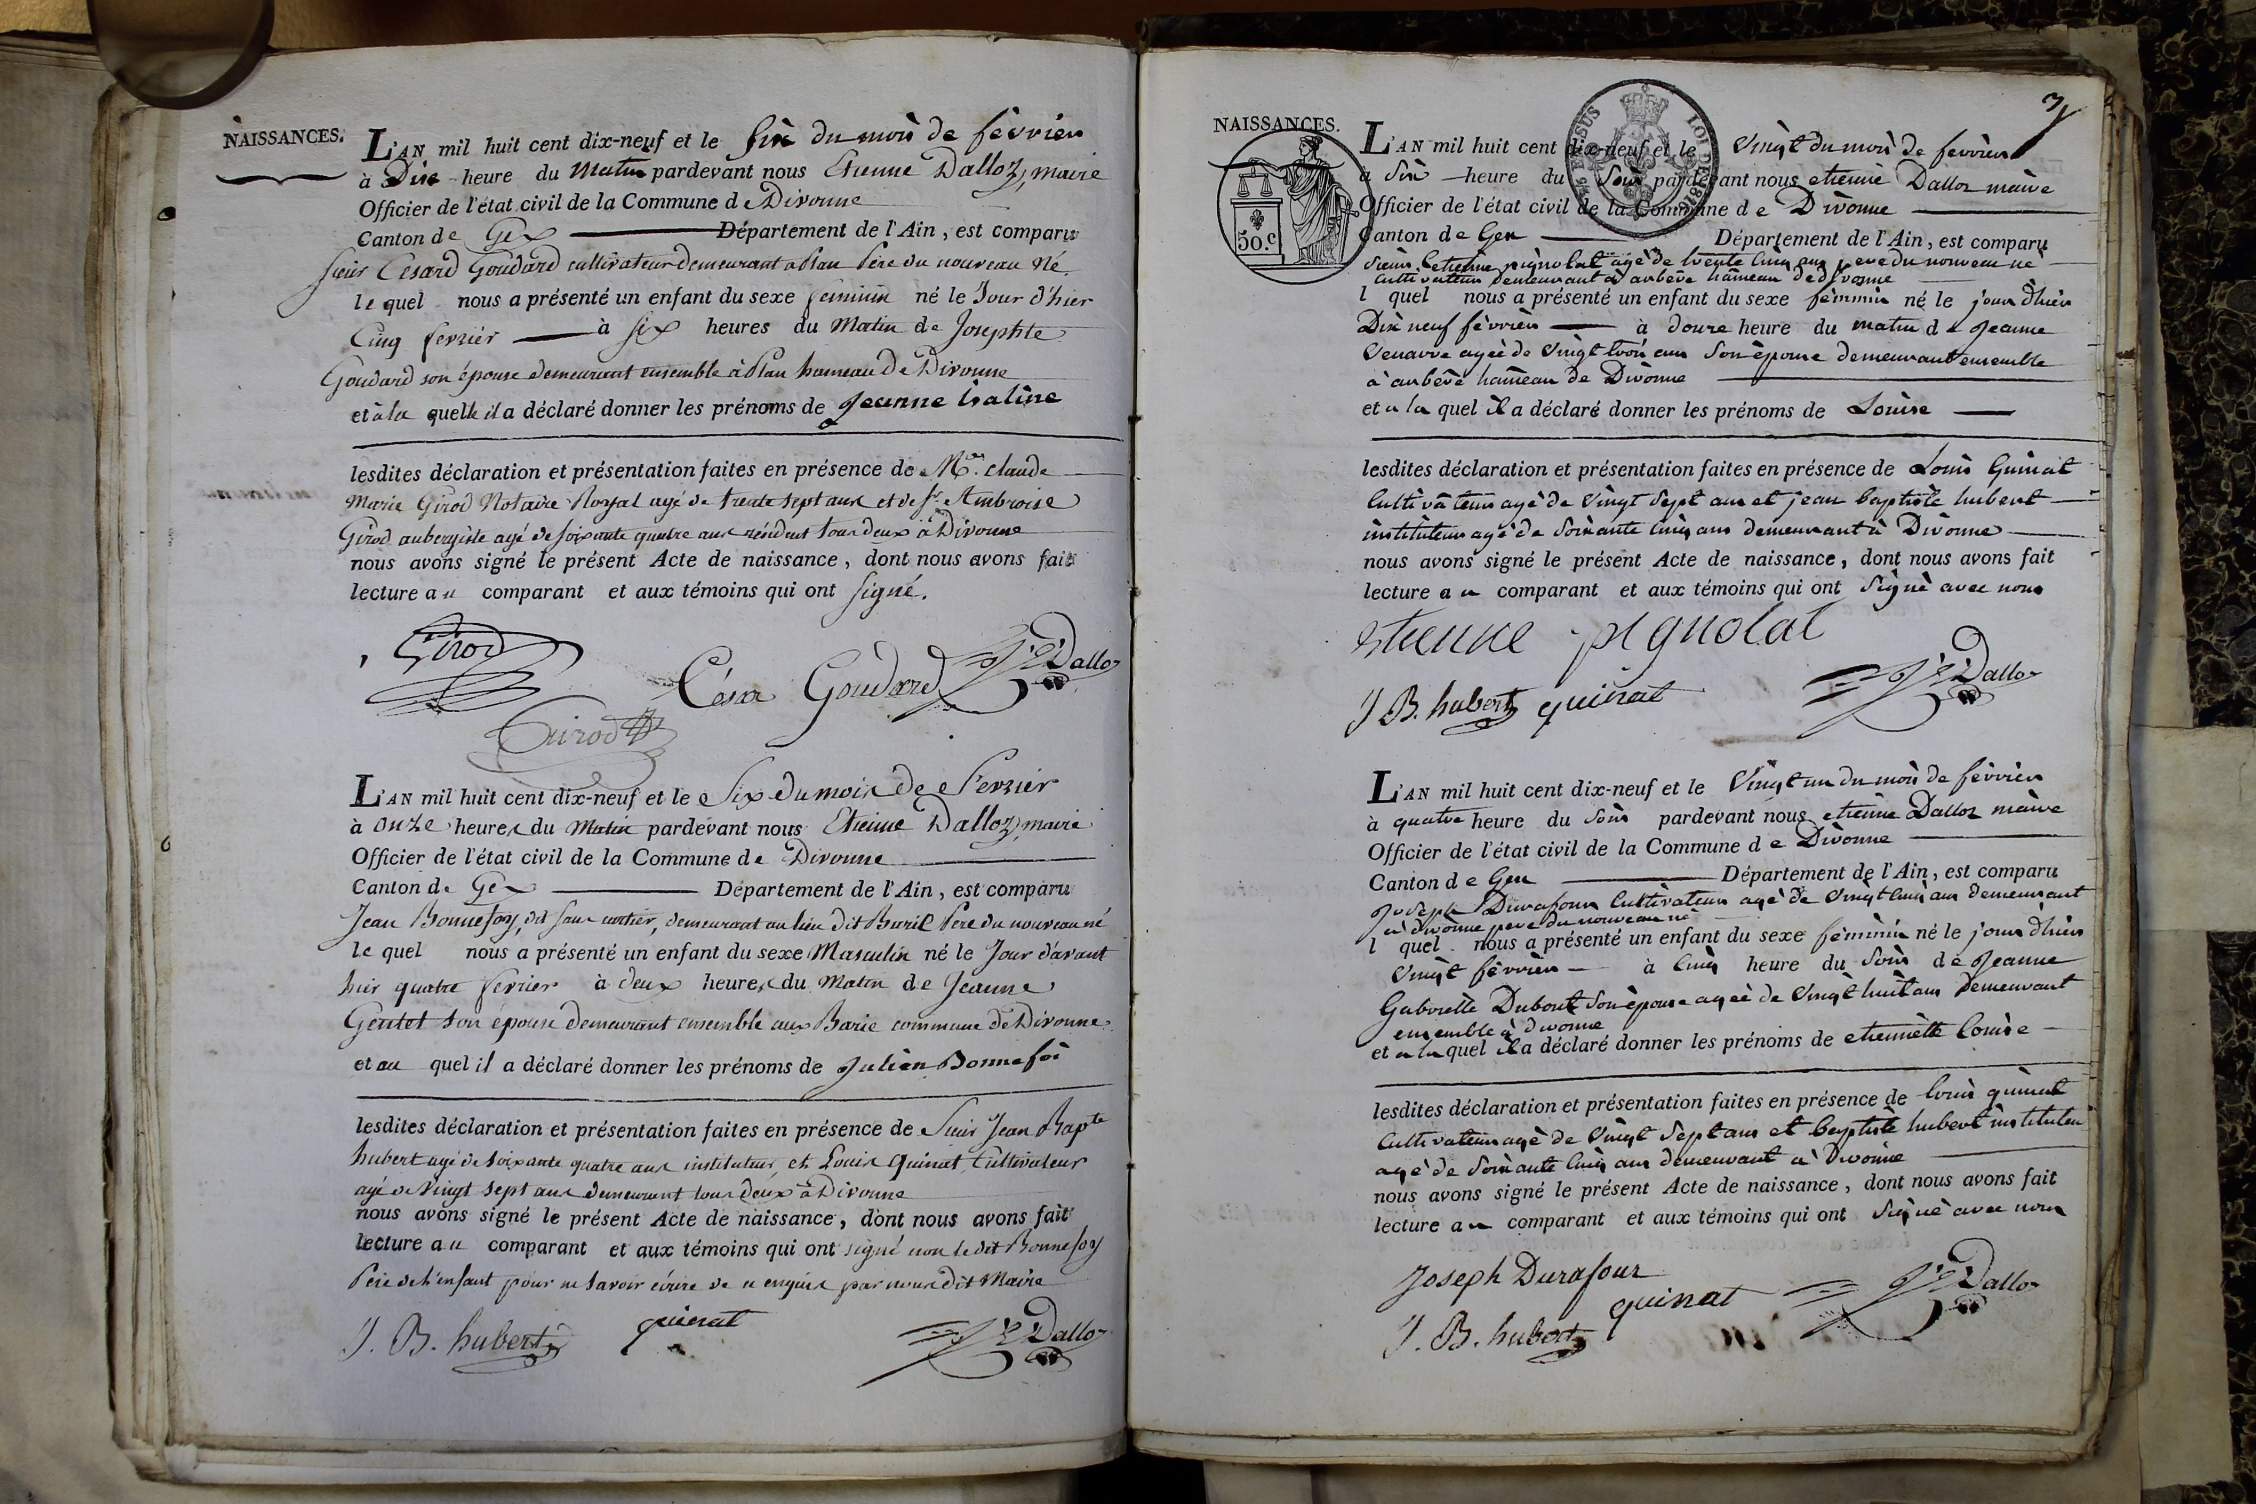 NAISSANCES.
L'AN mil huit cent dix-neuf et le six du mois de fèvrier
à Dix heure du Matin pardevant nous Etienne Dalloz, maire
Officier de l'état civil de la Commune de Divonne
Canton de Gex Département de l'Ain, est comparu
sieur Cesard Goudard cultivateur demeurant a plan Père du nouveau né
le quel nous a présenté un enfant du sexe féminin né le Jour d'hier
Cinq fevrier à six heures du Matin de Josephte
Goudard son épouse demeurant ensemble à Plan hameau De Divonne
et à la quelle il a déclaré donner les prénoms de Jeanne
lesdites déclaration et présentation faites en présence de Mre. claude
Marie Girod Notaire Royal agé de trente sept ans et de Sr. Ambroise
Girod aubergiste agé de soixante quatre ans résident tous deux à Divonne
nous avons signé le présent Acte de naissance, dont nous avons fait
lecture au comparant et aux témoins qui ont signé.
Girod
César Goudard J E Dalloz
Girod
L'AN mil huit cent dix-neuf et le Six du mois de Fevrier
à onze heures du Matin pardevant nous Etienne Dalloz, maire
Officier de l'état civil de la Commune de Divonne
Canton de Gex Département de l'Ain, est comparu
Jean Bonnefoy, dit sans cartier, demeurant au lieu dit Père du nouveau né
le quel nous a présenté un enfant du sexe Masculin né le Jour d'avant
hier quatre fevrier à deux heures du Matin de Jeanne
Gentet son épouse demeurant ensemble aux commune de Divonne
et au quel il a déclaré donner les prénoms de Julien Bonnefoi
lesdites déclaration et présentation faites en présence de Sieur Jean Bapte
hubert agé de soixante quatre ans instituteur, et Louis Quinat, Cultivateur
agé de vingt sept ans demeurant tous deux à Divonne
nous avons signé le présent Acte de naissance, dont nous avons fait
lecture au comparant et aux témoins qui ont signé non le dit Bonnefoy
Père de l'enfant pour ne savoir écrire de ce enquis par nous dit Maire
J. B. hubert quinat J E Dalloz
3
NAISSANCES.
50.c
L'AN mil huit cent dix-neuf et le vingt du mois de fevrier
à six heure du Soir pardevant nous etienne Dalloz maire
Officier de l'état civil de la Commune de Divonne
Canton de Gex Département de l'Ain, est comparu
sieur etienne pignolat agé de trente cinq ans pere du nouveau né
cultivateur demeurant à arbère hameau de divonne
l quel nous a présenté un enfant du sexe féminin né le jour d'hier
Dix neuf fèvrier à douze heure du matin de Jeanne
agée de vingt trois ans son épouse demeurant ensemble
à arbère hameau de Divonne
et a la quel il a déclaré donner les prénoms de Louise
lesdites déclaration et présentation faites en présence de Louis Quinat
cultivateur agé de vingt sept ans et jean baptiste hubert
instituteur agé de soixante cinq ans demeurant à Divonne
nous avons signé le présent Acte de naissance, dont nous avons fait
lecture au comparant et aux témoins qui ont signé avec nous
etienne pignolat
J B. hubert quinat J E Dalloz
L'AN mil huit cent dix-neuf et le vingt un du mois de fèvrier
à quatre heure du soir pardevant nous etienne Dalloz maire
Officier de l'état civil de la Commune de Divonne
Canton de Gex Département de l'Ain, est comparu
Joseph Durafour cultivateur agé de vingt cinq ans demeurant
à divonne pere du nouveau né
l quel nous a présenté un enfant du sexe féminin né le jour d'hier
vingt fèvrier à cinq heure du soir de Jeanne
Gabrielle Dubout son épouse agée de vingt huit ans demeurant
ensemble à divonne
et a la quel il a déclaré donner les prénoms de etiennette Louise
lesdites déclaration et présentation faites en présence de louis quinat
cultivateur agé de vingt sept ans et baptiste hubert instituteur
agé de soixante cinq ans demeurant à Divonne
nous avons signé le présent Acte de naissance, dont nous avons fait
lecture au comparant et aux témoins qui ont signé avec nous
Joseph Durafour
J. B. hubert quinat J E Dalloz